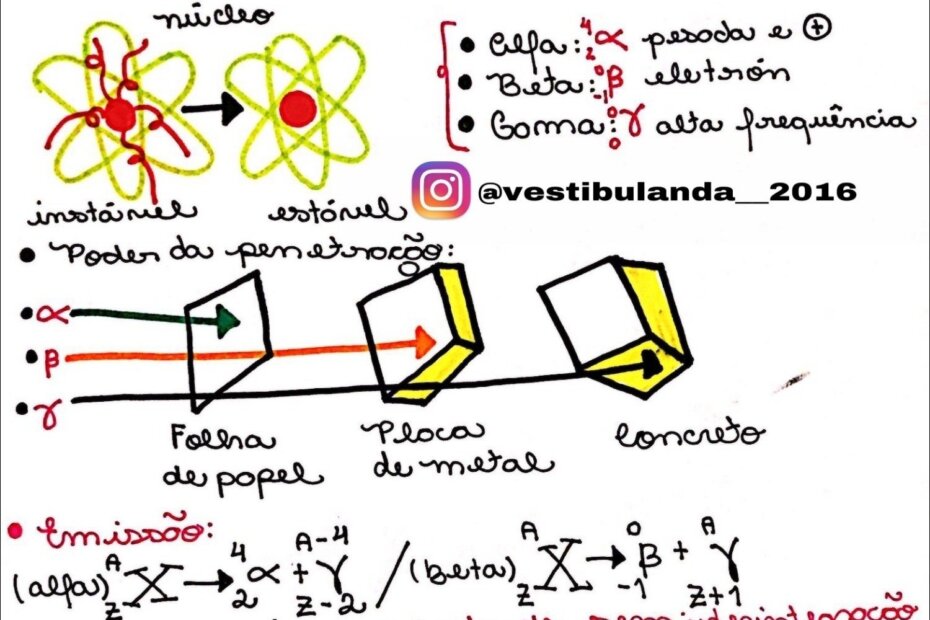 núcleo
instável
estável
• Alfa: ⁴₂α pesada e ⊕
• Beta: ⁰₋₁β eletrón
• Gama: ⁰₀γ alta frequência
@vestibulanda__2016
• Poder da penetração:
• α
• β
• γ
Folha
de papel
Placa
de metal
Concreto
• Emissão:
(alfa) ᴬzX → ⁴₂α + ᴬ⁻⁴z₋₂Y / (beta) ᴬzX → ⁰₋₁β + ᴬz₊₁Y